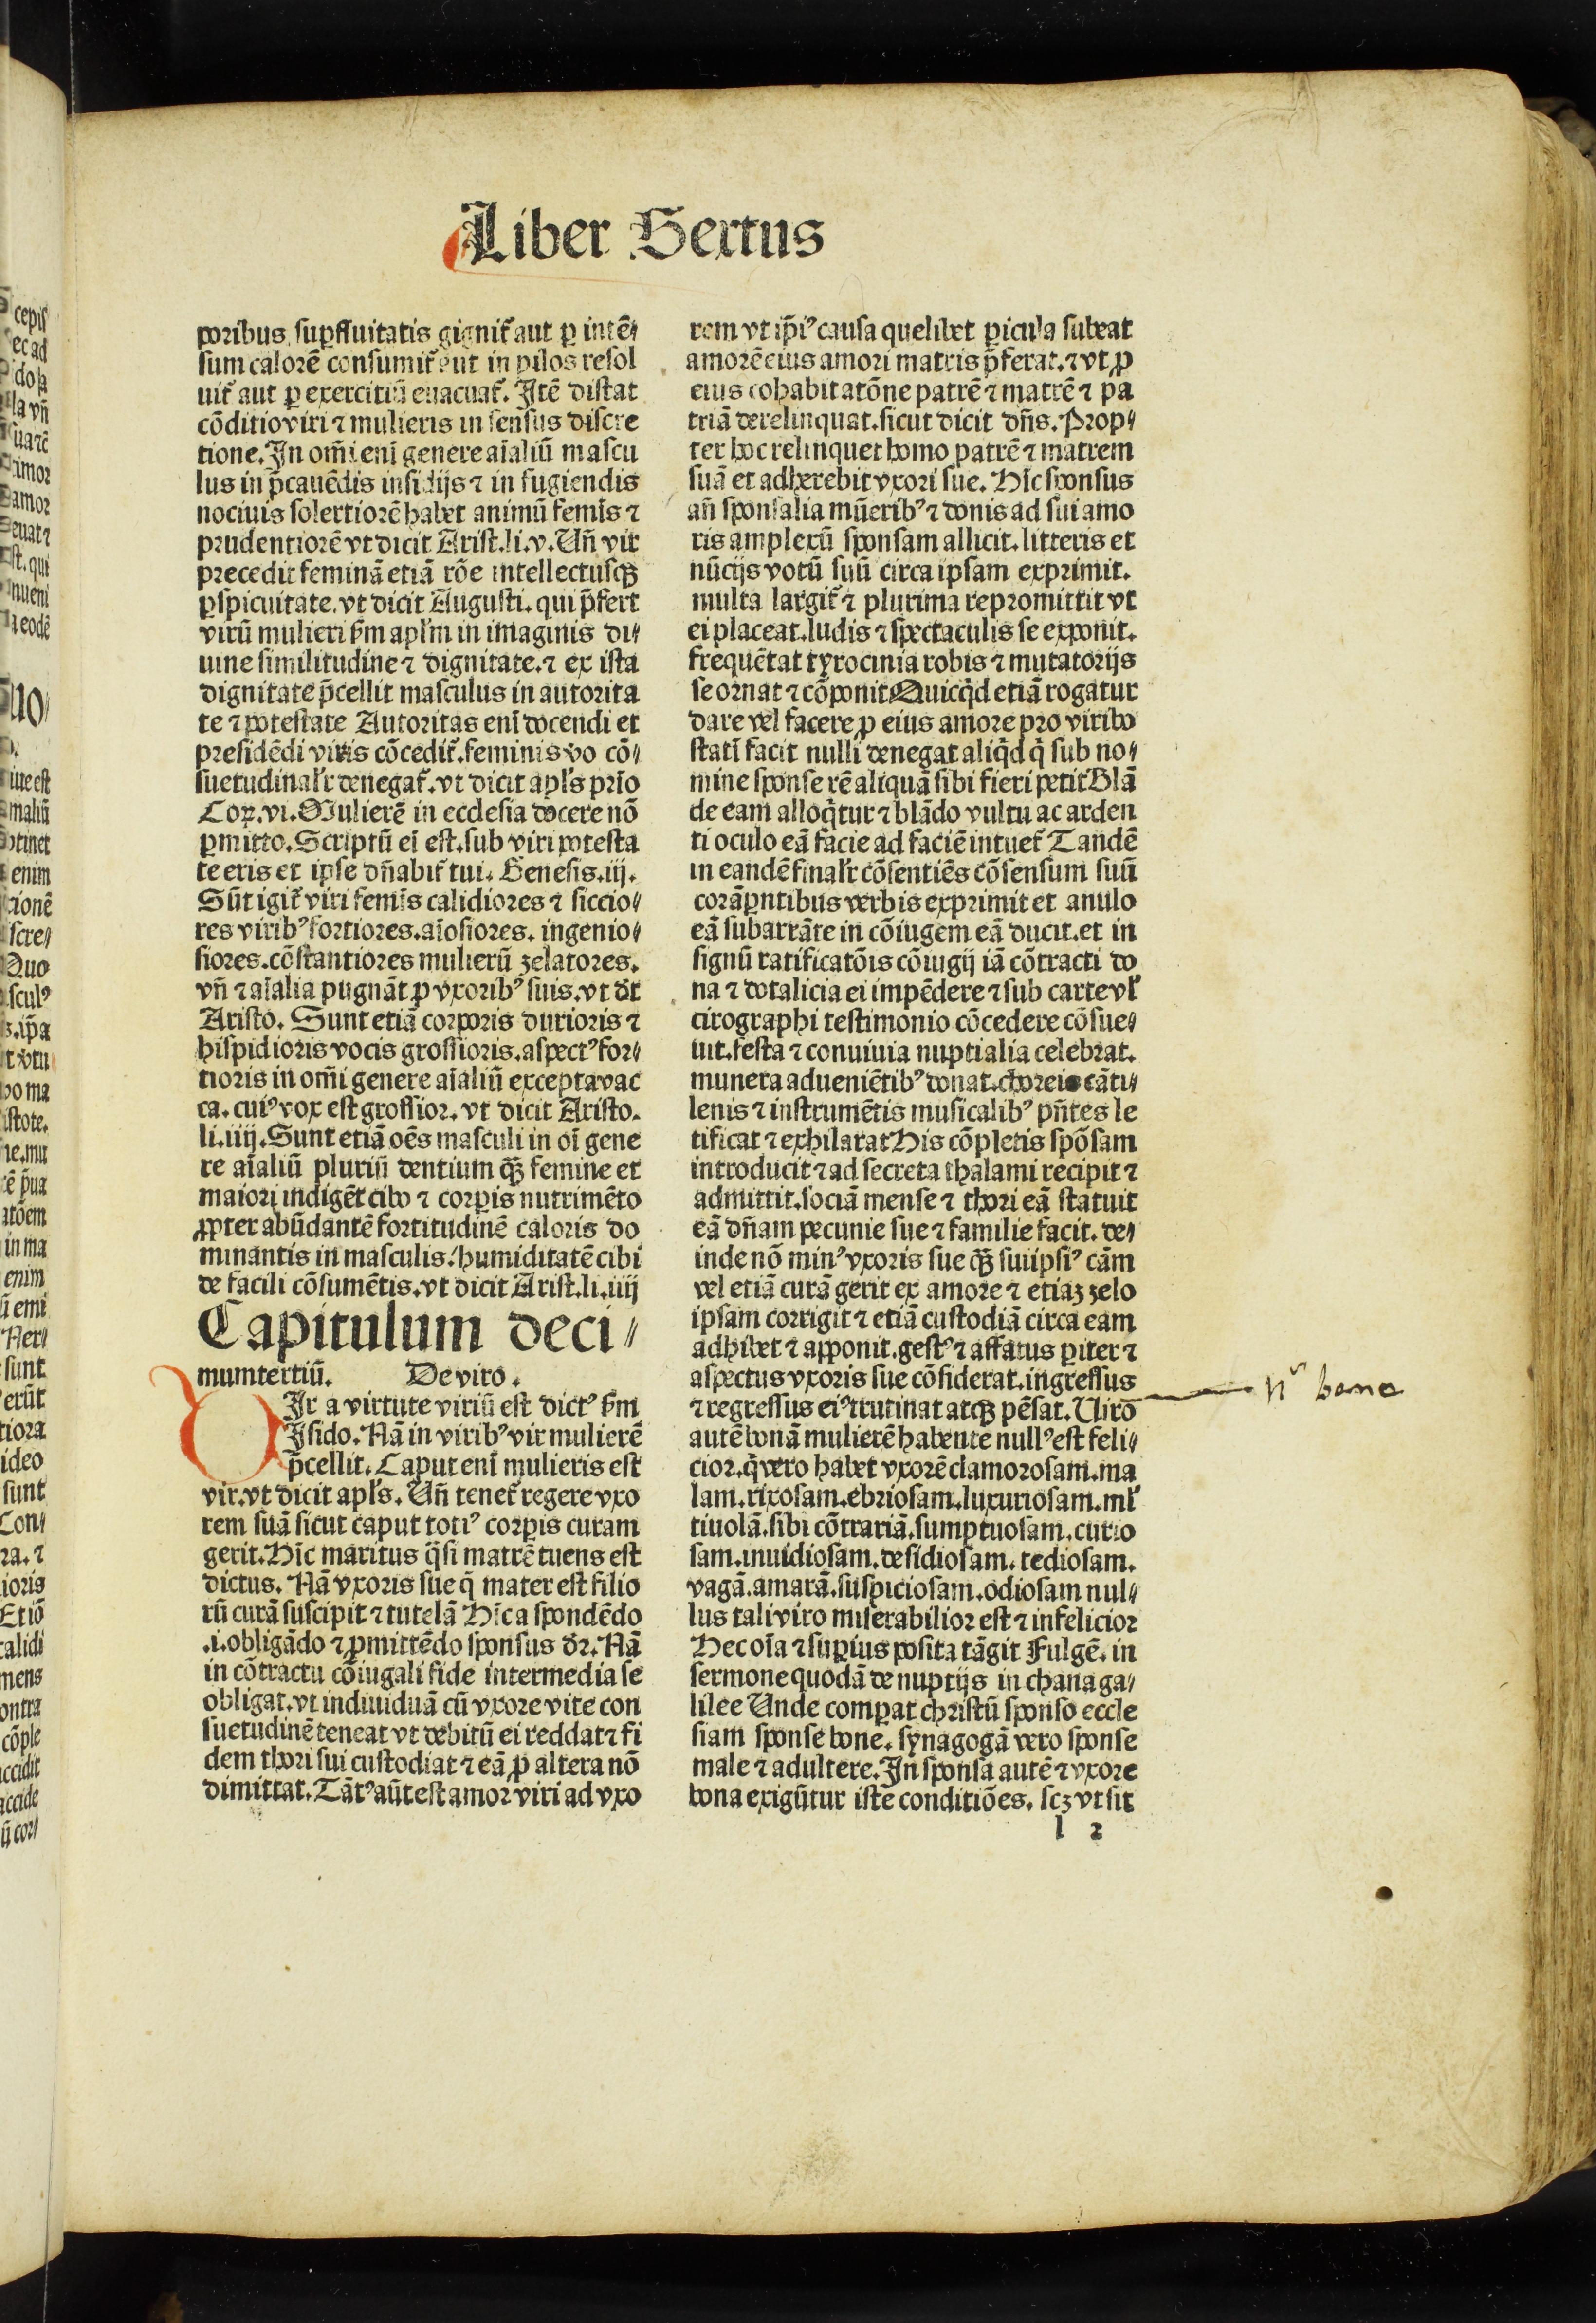 Liber Sextus
poribus supfluitatis gignit᷑ aut ꝑ intē⸗
sum calorē consumit᷑ aut in pilos resol
uit᷑ aut ꝑ exercitiū euacuat᷑. Itē distat
cōditio viri ⁊ mulieris in sensus discre
tione. In om̄i enī genere aīaliū mascu
lus in p̄cauēdis insidijs ⁊ in fugiendis
nociuis solertiorē habet animū femīs ⁊
prudentiorē vt dicit Arist. li. v. Uñ vir
precedit feminā etiā rōe intellectusqꝫ
ꝑspicuitate. vt dicit Augusti. qui p̄fert
virū mulieri ẜm apl'm in imaginis di⸗
uine similitudine ⁊ dignitate. ⁊ ex ista
dignitate p̄cellit masculus in autorita
te ⁊ potestate Autoritas enī docendi et
presidēdi viris cōcedit᷑. feminis vo cō⸗
suetudinal'r denegat᷑. vt dicit apl's prīo
Coꝝ. vi. Mulierē in ecclesia docere nō
ꝑmitto. Scriptū eī est. sub viri potesta
te eris et ipse dn̄abit᷑ tui. Genesis. iij.
Sūt igit᷑ viri femīs calidiores ⁊ siccio⸗
res viribꝰ fortiores. aīosiores. ingenio⸗
siores. cōstantiores mulierū zelatores.
vñ ⁊ aīalia pugnāt ꝓ vxoribꝰ suis. vt dt
Aristo. Sunt etiā corporis durioris ⁊
hispidioris vocis grossioris. aspectꝰ for⸗
tioris in om̄i genere aīaliū excepta vac
ca. cuiꝰ vox est grossior. vt dicit Aristo.
li. iiij. Sunt etiā oēs masculi in oī gene
re aīaliū pluriū dentium qꝫ femine et
maiori indigēt cibo ⁊ corꝑis nutrimēto
ꝓpter abūdantē fortitudinē caloris do
minantis in masculis. humiditatē cibi
de facili cōsumētis. vt dicit Arist. li. iiij
Capitulum deci⸗
mumtertiū. De viro.
VIr a virtute viriū est dictꝰ ẜm
Isido. Nā in viribꝰ vir mulierē
p̄cellit. Caput enī mulieris est
vir. vt dicit apl's. Uñ tenet᷑ regere vxo
rem suā sicut caput totiꝰ corꝑis curam
gerit. Hīc maritus q̄si matrē tuens est
dictus. Nā vxoris sue q̄ mater est filio
rū curā suscipit ⁊ tutelā Hīc a spondēdo
.i. obligādo ⁊ ꝓmittēdo sponsus dr̄. Nā
in cōtractu cōiugali fide intermedia se
obligat. vt indiuiduā cū vxore vite con
suetudinē teneat vt debitū ei reddat ⁊ fi
dem thori sui custodiat ⁊ eā ꝓ altera nō
dimittat. Tātꝰ aūt est amor viri ad vxo
rem vt ip̄iꝰ causa quelibet ꝑicula subeat
amorē eius amori matris p̄ferat. ⁊ vt ꝓ
eius cohabitatōne patrē ⁊ matrē ⁊ pa
triā derelinquat. sicut dicit dn̄s. Prop⸗
ter hoc relinquet homo patrē ⁊ matrem
suā et adherebit vxori sue. Hīc sponsus
añ sponsalia mūeribꝰ ⁊ donis ad sui amo
ris amplexū sponsam allicit. litteris et
nūcijs votū suū circa ipsam exprimit.
multa largit᷑ ⁊ plurima repromittit vt
ei placeat. ludis ⁊ spectaculis se exponit.
frequētat tyrocinia robis ⁊ mutatorijs
se ornat ⁊ cōponit Quicq̄d etiā rogatur
dare vel facere ꝓ eius amore pro viribꝰ
statī facit nulli denegat aliq̄d q̄ sub no⸗
mine sponse rē aliquā sibi fieri petit Blā
de eam alloq̄tur ⁊ blādo vultu ac arden
ti oculo eā facie ad faciē intuet᷑ Tandē
in eandē final'r cōsentiēs cōsensum suū
corā p̄ntibus verbis exprimit et anulo
eā subarrāte in cōiugem eā ducit. et in
signū ratificatōis cōiugij iā cōtracti do
na ⁊ dotalicia ei impēdere ⁊ sub carte vl'
cirographi testimonio cōcedere cōsue⸗
uit. festa ⁊ conuiuia nuptialia celebrat.
munera adueniētibꝰ donat. choreis cāti⸗
lenis ⁊ instrumētis musicalibꝰ pn̄tes le
tificat ⁊ exhilarat His cōpletis spōsam
introducit ⁊ ad secreta thalami recipit ⁊
admittit. sociā mense ⁊ thori eā statuit
eā dn̄am pecunie sue ⁊ familie facit. de⸗
inde nō minꝰ vxoris sue qꝫ sui ipsiꝰ cām
vel etiā curā gerit ex amore ⁊ etiaꝫ zelo
ipsam corrigit ⁊ etiā custodiā circa eam
adhibet ⁊ apponit. gestꝰ ⁊ affatus ꝑiter ⁊
aspectus vxoris sue cōsiderat. ingressus
⁊ regressus eiꝰ trutinat atqꝫ pēsat. Uiro
autē bonā mulierē habente nullꝰ est feli⸗
cior. q̄ vero habet vxorē clamorosam. ma
lam. rixosam. ebriosam. luxuriosam. ml'
tiuolā. sibi cōtrariā. sumptuosam. curio
sam. inuidiosam. desidiosam. tediosam.
vagā. amarā. suspiciosam. odiosam nul⸗
lus tali viro miserabilior est ⁊ infelicior
Hec oīa ⁊ suꝑius posita tāgit Fulgē. in
sermone quodā de nuptijs in chana ga⸗
lilee Unde comꝑat christū sponso eccle
siam sponse bone. synagogā vero sponse
male ⁊ adultere. In sponsa autē ⁊ vxore
bona exigūtur iste conditiōes. scꝫ vt sit
l 2
bene